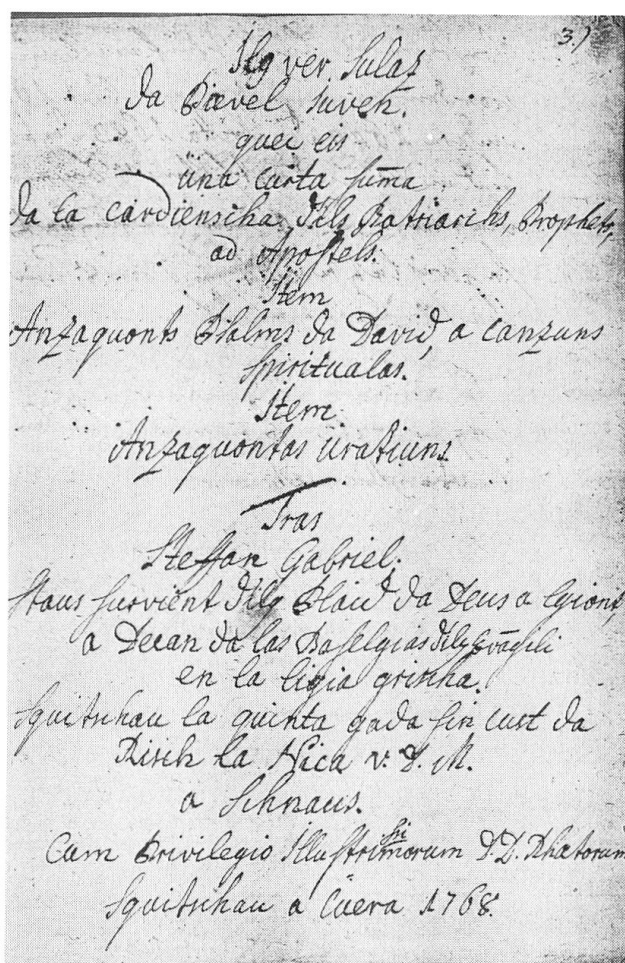 3.)
Ilg ver Sulaz
da Pievel Juven.
quei eis
üna curta suma
da la cardienscha Dils Patriarchs, Prophets,
ad Apostels.
Item
Anzaquonts Psalms da David, a canzuns
Spiritualas.
Item
Anzaquontas Uratiuns
Tras
Steffan Gabriel.
Staus survient Dilg Plaid da Deus a Glyont,
a Decan da las Baselgias Dilg Evāgeli
en la Ligia grischa.
Squitschau la quinta gada sin cust da
Risch la Nica v. D. M.
a Schnaus.
Cum Privilegio Illustrissimorum D.D. Rhætorum
Squitschau a Cuera 1768.